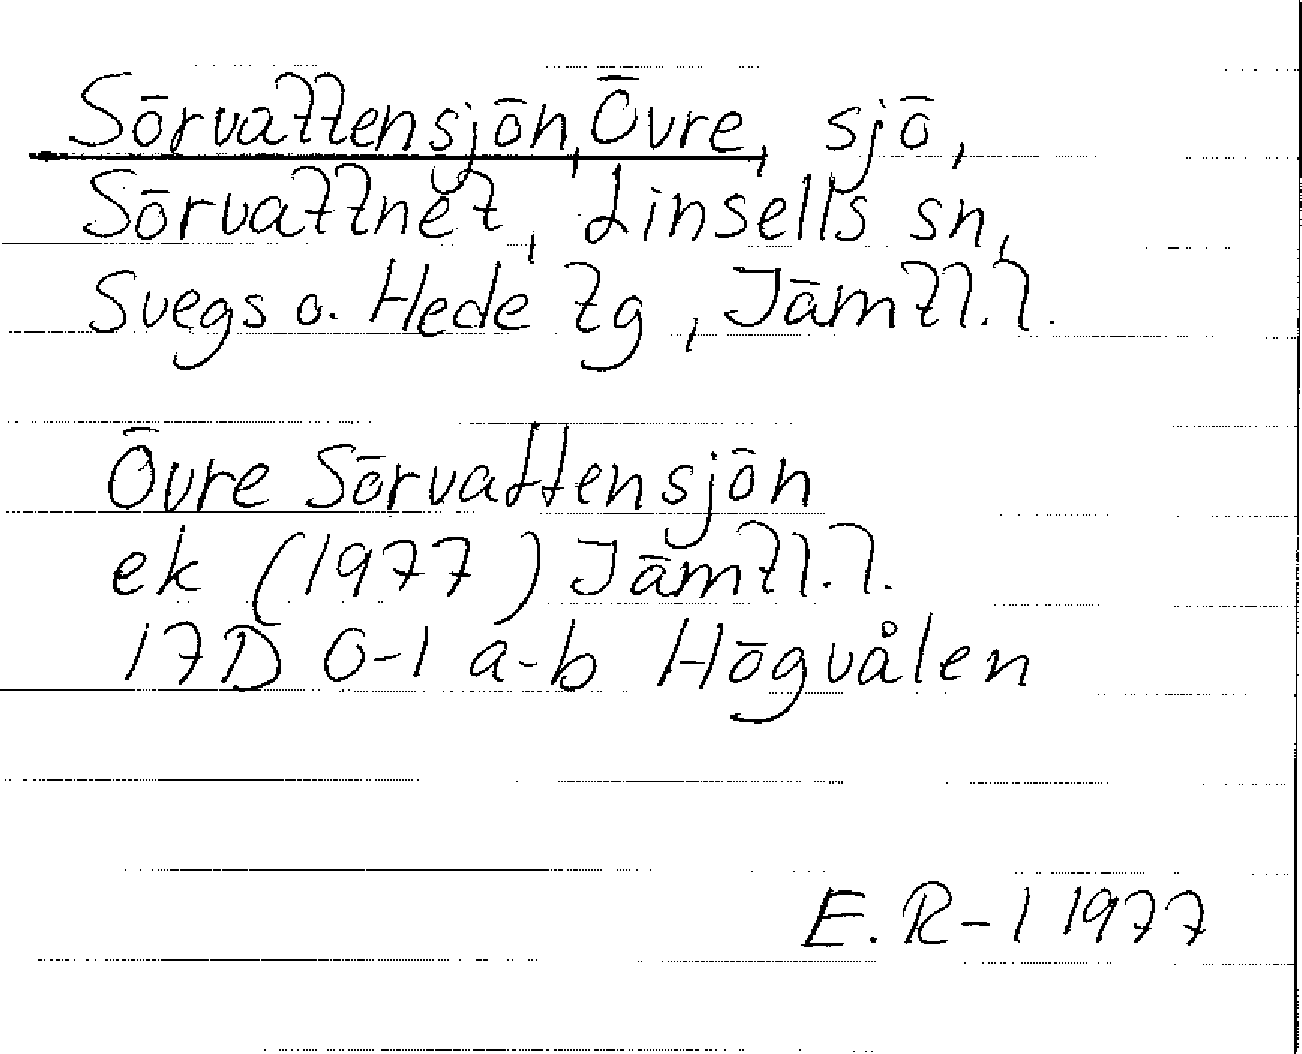 Sörvattensjön, Övre, sjö,
Sörvattnet, Linsells sn,
Svegs o. Hede tg, Jämtl. l.
Övre Sörvattensjön
ek (1977) Jämtl. l.
17D 0-1 a-b Högvålen
E. R-l 1977